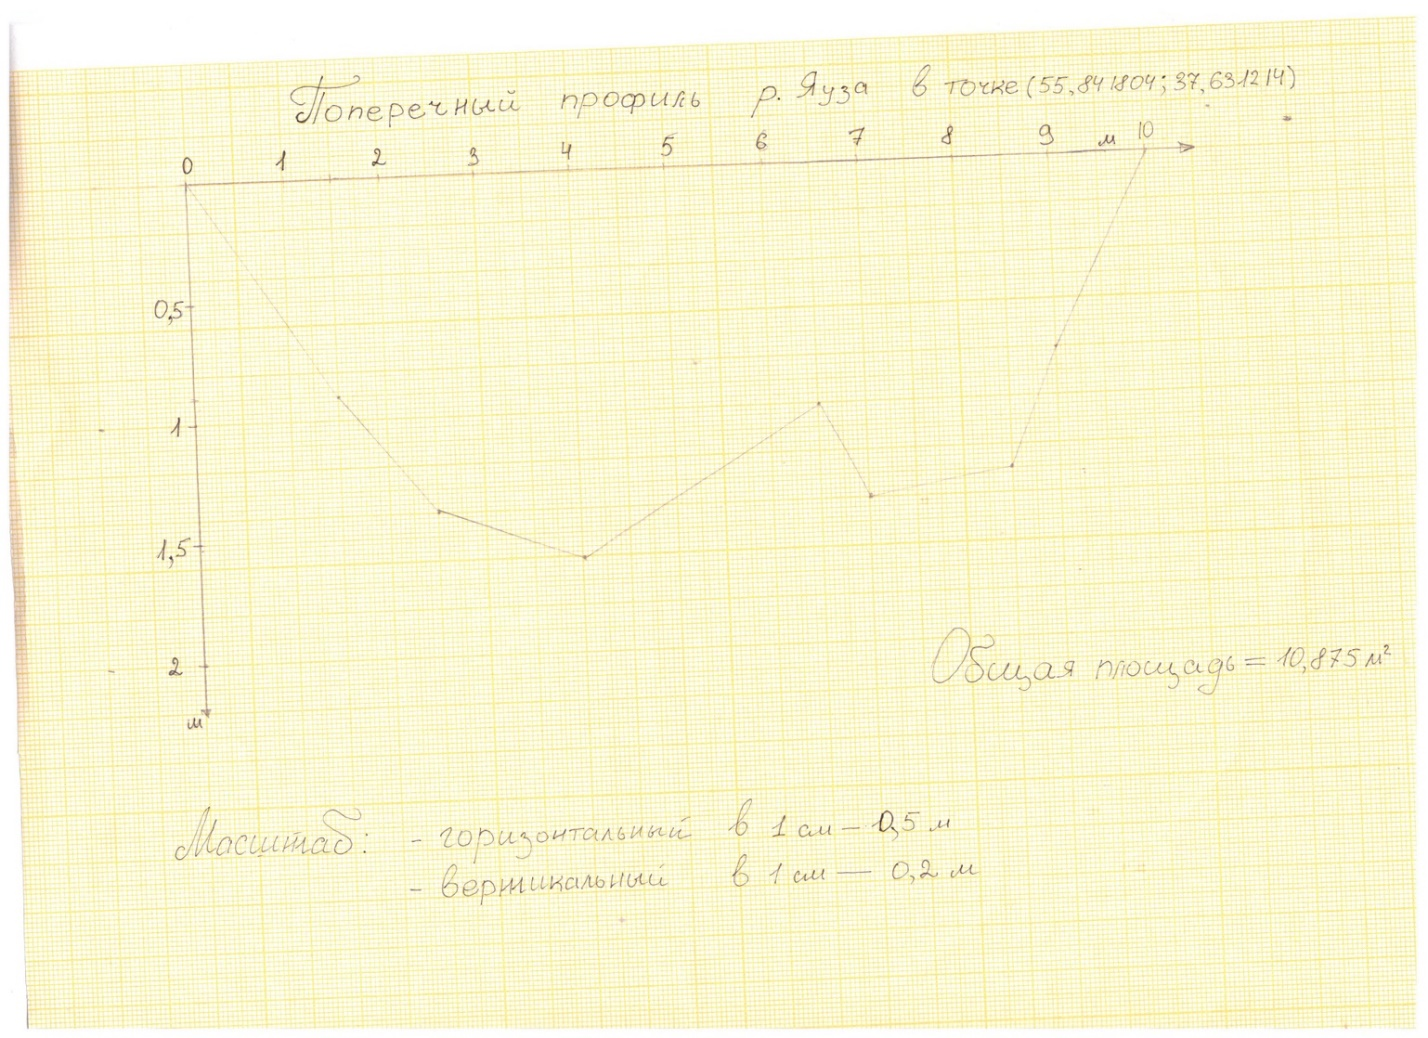 Поперечный профиль р. Яуза в точке (55,841804; 37,631214)
0 1 2 3 4 5 6 7 8 9 м 10
0,5
1
1,5
2
м
Общая площадь = 10,875 м²
Масштаб: - горизонтальный в 1 см — 0,5 м
- вертикальный в 1 см — 0,2 м